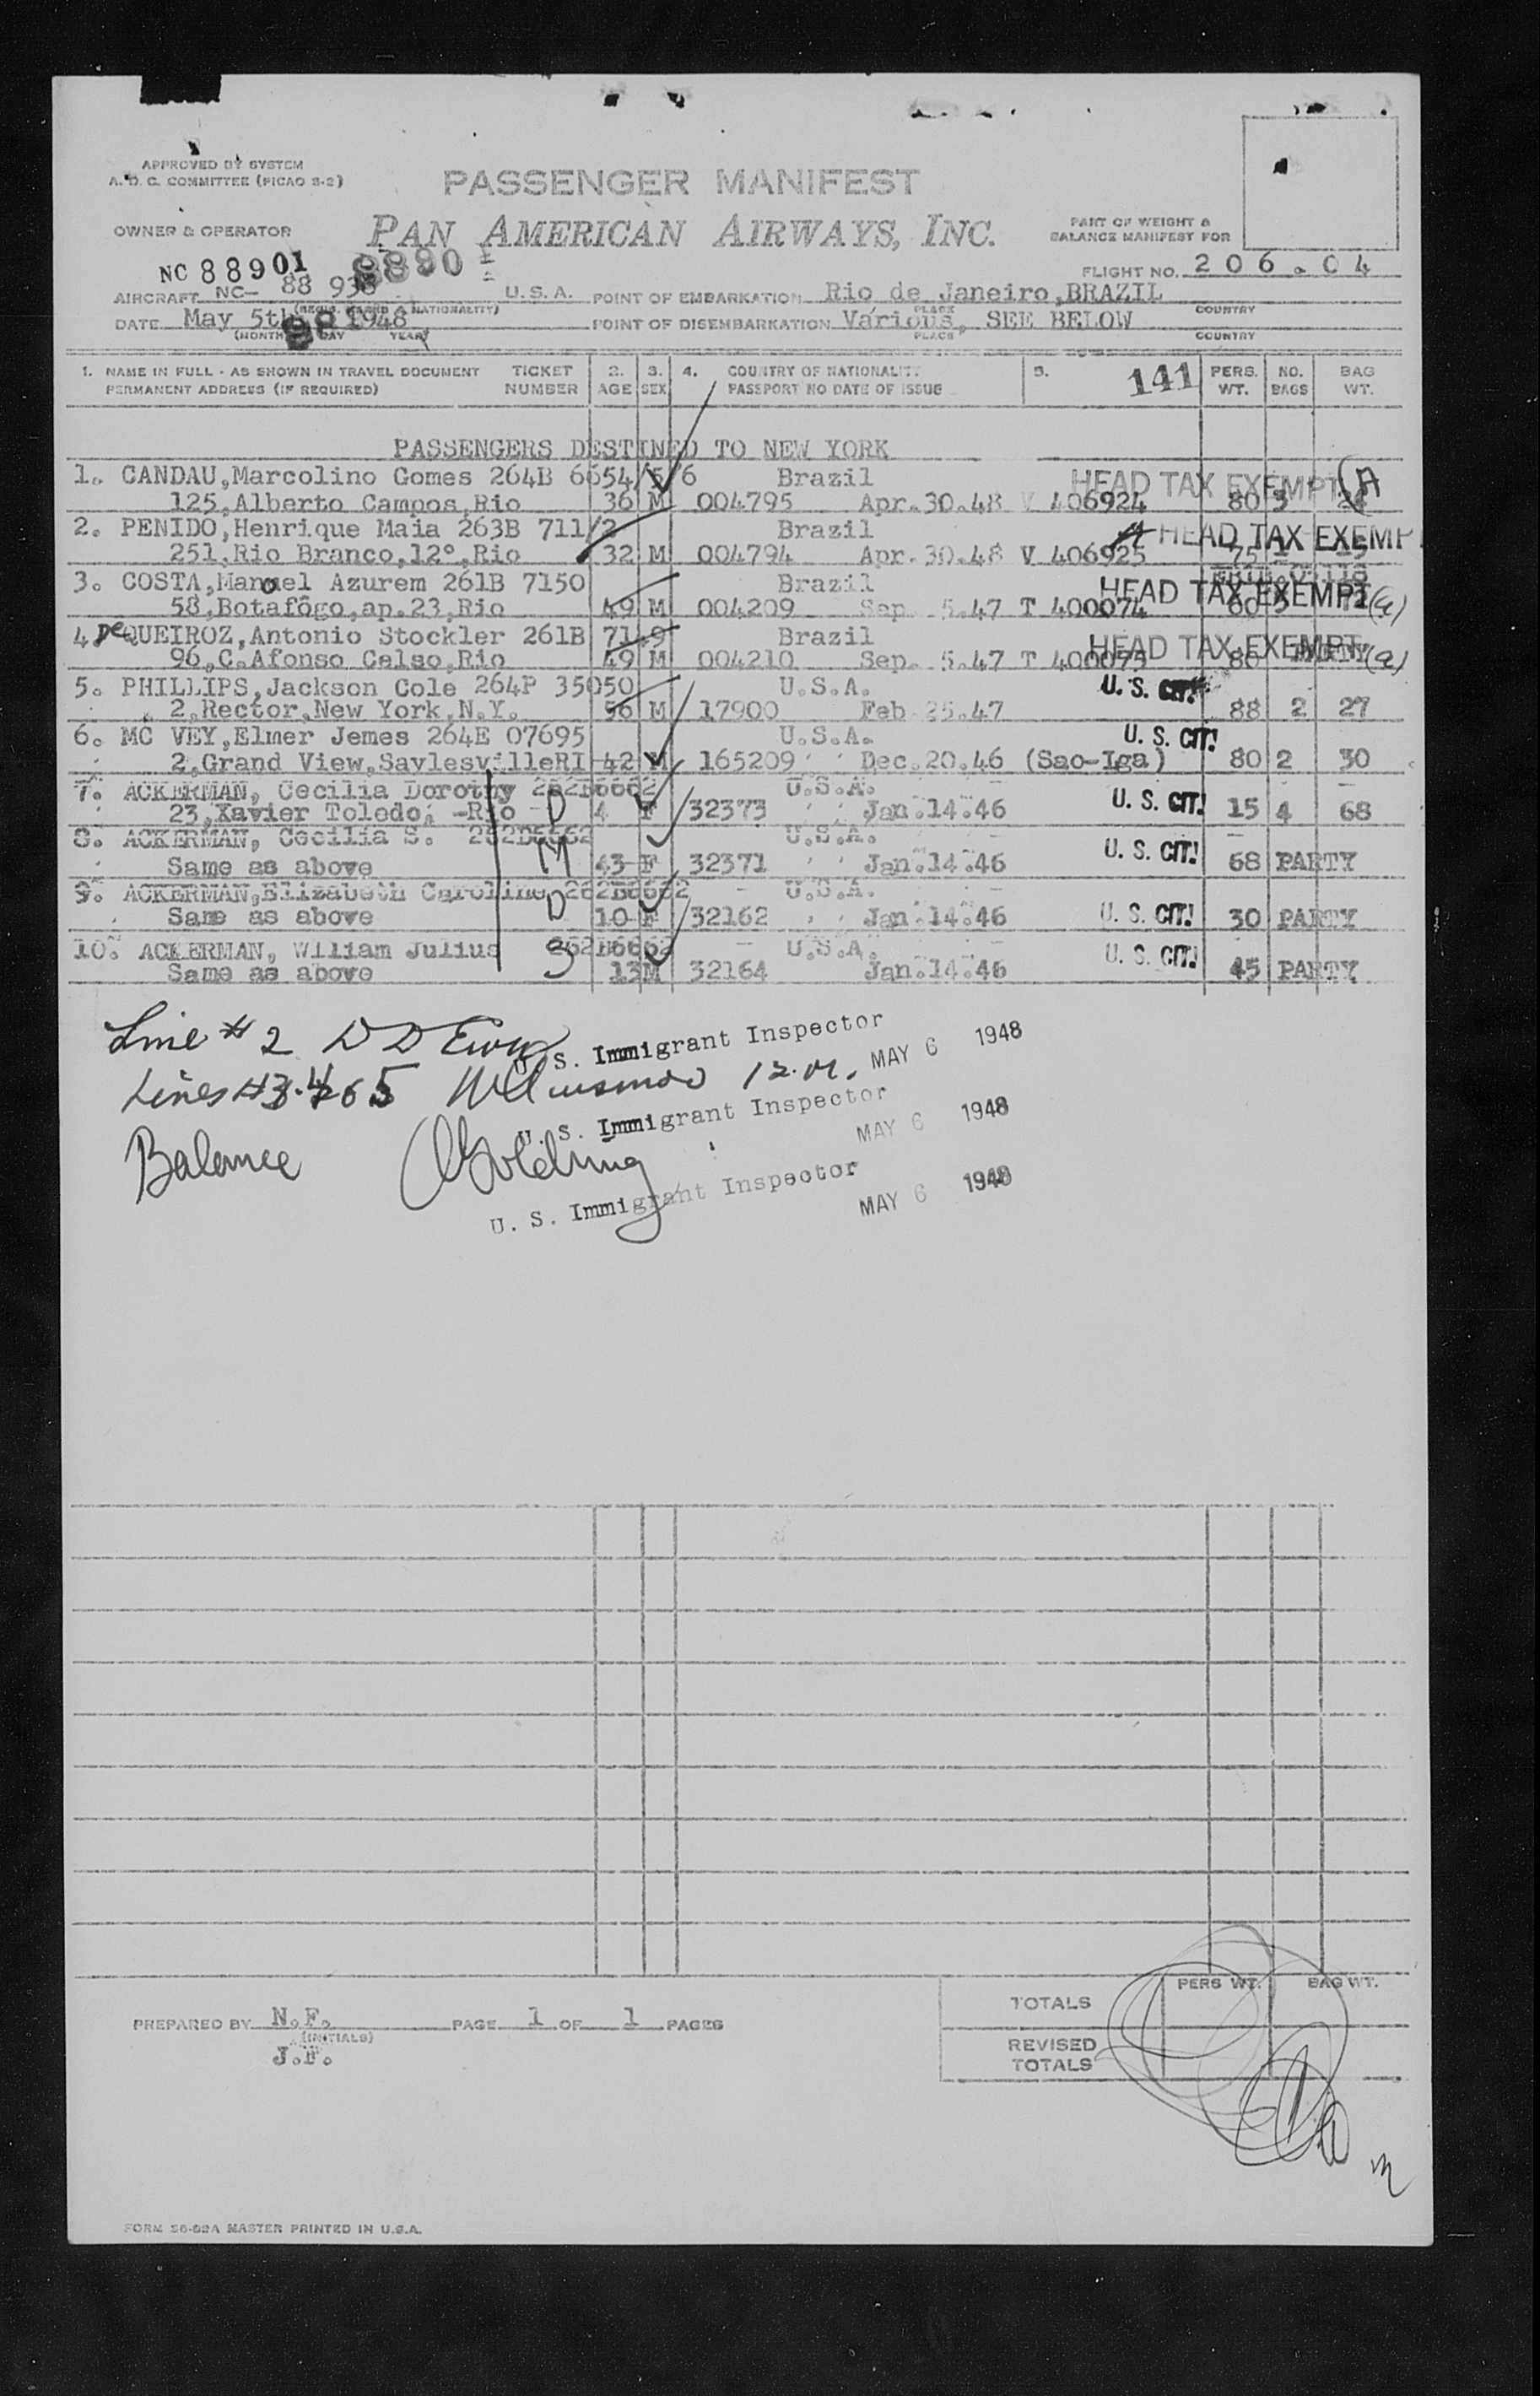 APPROVED BY SYSTEM
A. D. C. COMMITTEE (PICAO S-2)
PASSENGER MANIFEST
OWNER & OPERATOR
PAN AMERICAN AIRWAYS, INC.
PART OF WEIGHT &
BALANCE MANIFEST FOR
NC 88901
8890
FLIGHT NO. 206.04
AIRCRAFT NC- 88 U.S.A. POINT OF EMBARKATION Rio de Janeiro, BRAZIL
PLACE COUNTRY
DATE May 5th 1948 POINT OF DISEMBARKATION Various, SEE BELOW
(MONTH DAY YEAR) PLACE COUNTRY
1. NAME IN FULL - AS SHOWN IN TRAVEL DOCUMENT TICKET 2. 3. 4. COUNTRY OF NATIONALITY 5. 141 PERS. NO. BAG
PERMANENT ADDRESS (IF REQUIRED) NUMBER AGE SEX PASSPORT NO DATE OF ISSUE WT. BAGS WT.
PASSENGERS DESTINED TO NEW YORK
1. CANDAU, Marcolino Gomes 264B 6654/5/6 Brazil HEAD TAX EXEMPT (A
125, Alberto Campos, Rio 36 M 004795 Apr.30.48 V 406924 80 3
2. PENIDO, Henrique Maia 263B 711/2 Brazil HEAD TAX EXEMP
251, Rio Branco, 12º, Rio 32 M 004794 Apr.30.48 V 406925 75
3. COSTA, Manoel Azurem 261B 7150 Brazil HEAD TAX EXEMPT (a)
58, Botafôgo, ap.23, Rio 49 M 004209 Sep. 5.47 T 400074
4. De QUEIROZ, Antonio Stockler 261B 7149 Brazil HEAD TAX EXEMPT (a)
96, C.Afonso Celso, Rio 49 M 004210 Sep. 5.47 T 400075 PARTY
5. PHILLIPS, Jackson Cole 264P 35050 U.S.A. U. S. CIT!
2, Rector, New York, N.Y. 56 M 17900 Feb 25.47 88 2 27
6. MC VEY, Elmer Jemes 264E 07695 U.S.A. U. S. CIT!
2, Grand View, SaylesvilleRI 42 M 165209 Dec.20.46 (Sao-Iga) 80 2 30
7. ACKERMAN, Cecilia Dorothy 262B6662 U.S.A.
23, Xavier Toledo, -Rio D 4 F 32373 Jan.14.46 U. S. CIT! 15 4 68
8. ACKERMAN, Cecilia S. 262B6662 U.S.A.
Same as above M 43 F 32371 Jan.14.46 U. S. CIT! 68 PARTY
9. ACKERMAN, Elizabeth Caroline 262B6662 U.S.A.
Same as above D 10 F 32162 Jan.14.46 U. S. CIT! 30 PARTY
10. ACKERMAN, William Julius 262B6662 U.S.A.
Same as above S 13 M 32164 Jan.14.46 U. S. CIT! 45 PARTY
Line # 2
U. S. Immigrant Inspector MAY 6 1948
Lines #3.4 5
U. S. Immigrant Inspector MAY 6 1948
Balance Golding
U. S. Immigrant Inspector MAY 6 1948
PERS WT. BAG WT.
TOTALS
PREPARED BY N.F. PAGE 1 OF 1 PAGES
(INITIALS)
J.F.
REVISED
TOTALS
FORM 26-02A MASTER PRINTED IN U.S.A.